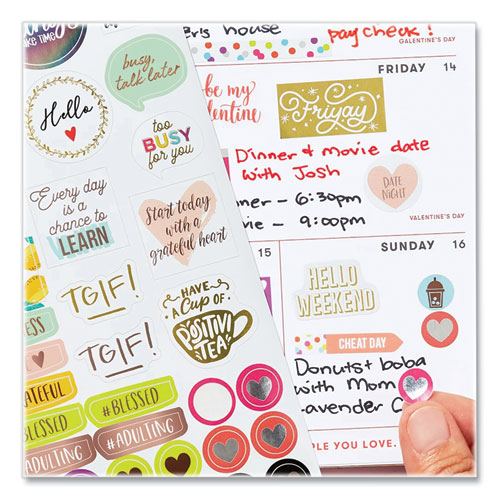 TAKE TIME
busy,
talk later
Hello
too
BUSY
for you
Every day
is a
chance to
LEARN
Start today
with a
grateful heart
TGIF!
TGIF!
HAVE
A CUP OF
POSITIVI
TEA
#BLESSED
#BLESSED
#ADULTING
#ADULTING
house
pay check!
GALENTINE'S DAY
FRIDAY 14
be my
Friyay
Dinner & movie date
with Josh
6:30pm
9:00pm
DATE
NIGHT
VALENTINE'S DAY
15
SUNDAY 16
HELLO
WEEKEND
CHEAT DAY
Donuts + boba
with Mom
YOU LOVE.